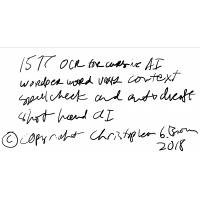 15 TT OCR for cursive AI
word per word uses context
spell check and autocorrect
shot hand AI
© copyright christopher G. Brown
2018